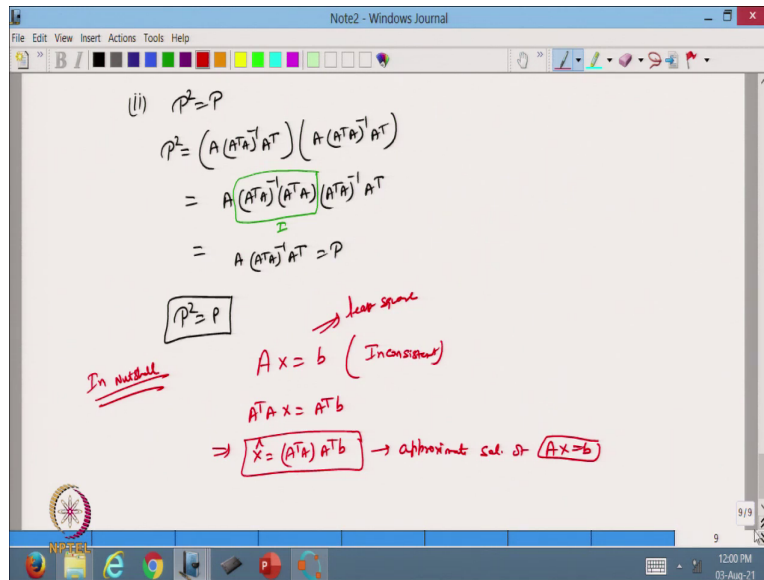 Note2 - Windows Journal
File Edit View Insert Actions Tools Help
B I
(ii) P² = P
P² = (A (AᵀA)⁻¹ Aᵀ) (A (AᵀA)⁻¹ Aᵀ)
= A (AᵀA)⁻¹ (AᵀA) (AᵀA)⁻¹ Aᵀ
I
= A (AᵀA)⁻¹ Aᵀ = P
P² = P
⇒ least square
In Nutshell
Ax = b (Inconsistent)
AᵀA x = Aᵀb
⇒ x̂ = (AᵀA) Aᵀb → approximate sol. of Ax=b
9/9
9
NPTEL
12:00 PM
03-Aug-21